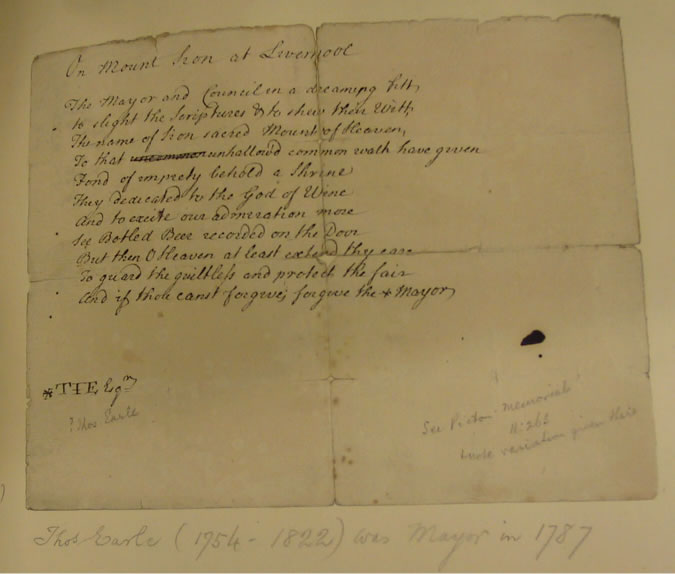 On Mount Sion at Liverpool
The Mayor and Council in a dreaming fitt,
to slight the Scriptures & to shew their Witt,
The name of Sion sacred Mount of Heaven,
To that uncommon unhallow'd common walk have given
Fond of impiety behold a Shrine
They dedicated to the God of Wine
And to excite our admeration more
See Botled Beer recorded on the Door
But then O Heaven at least extend thy care
To guard the guiltless and protect the fair
And if thou canst forgive; forgive the * Mayor,
* T E Esqr
? Thos. Earle
See Picton Memorials
II. 262
note variation given there
Thos Earle (1754 - 1822) was Mayor in 1787